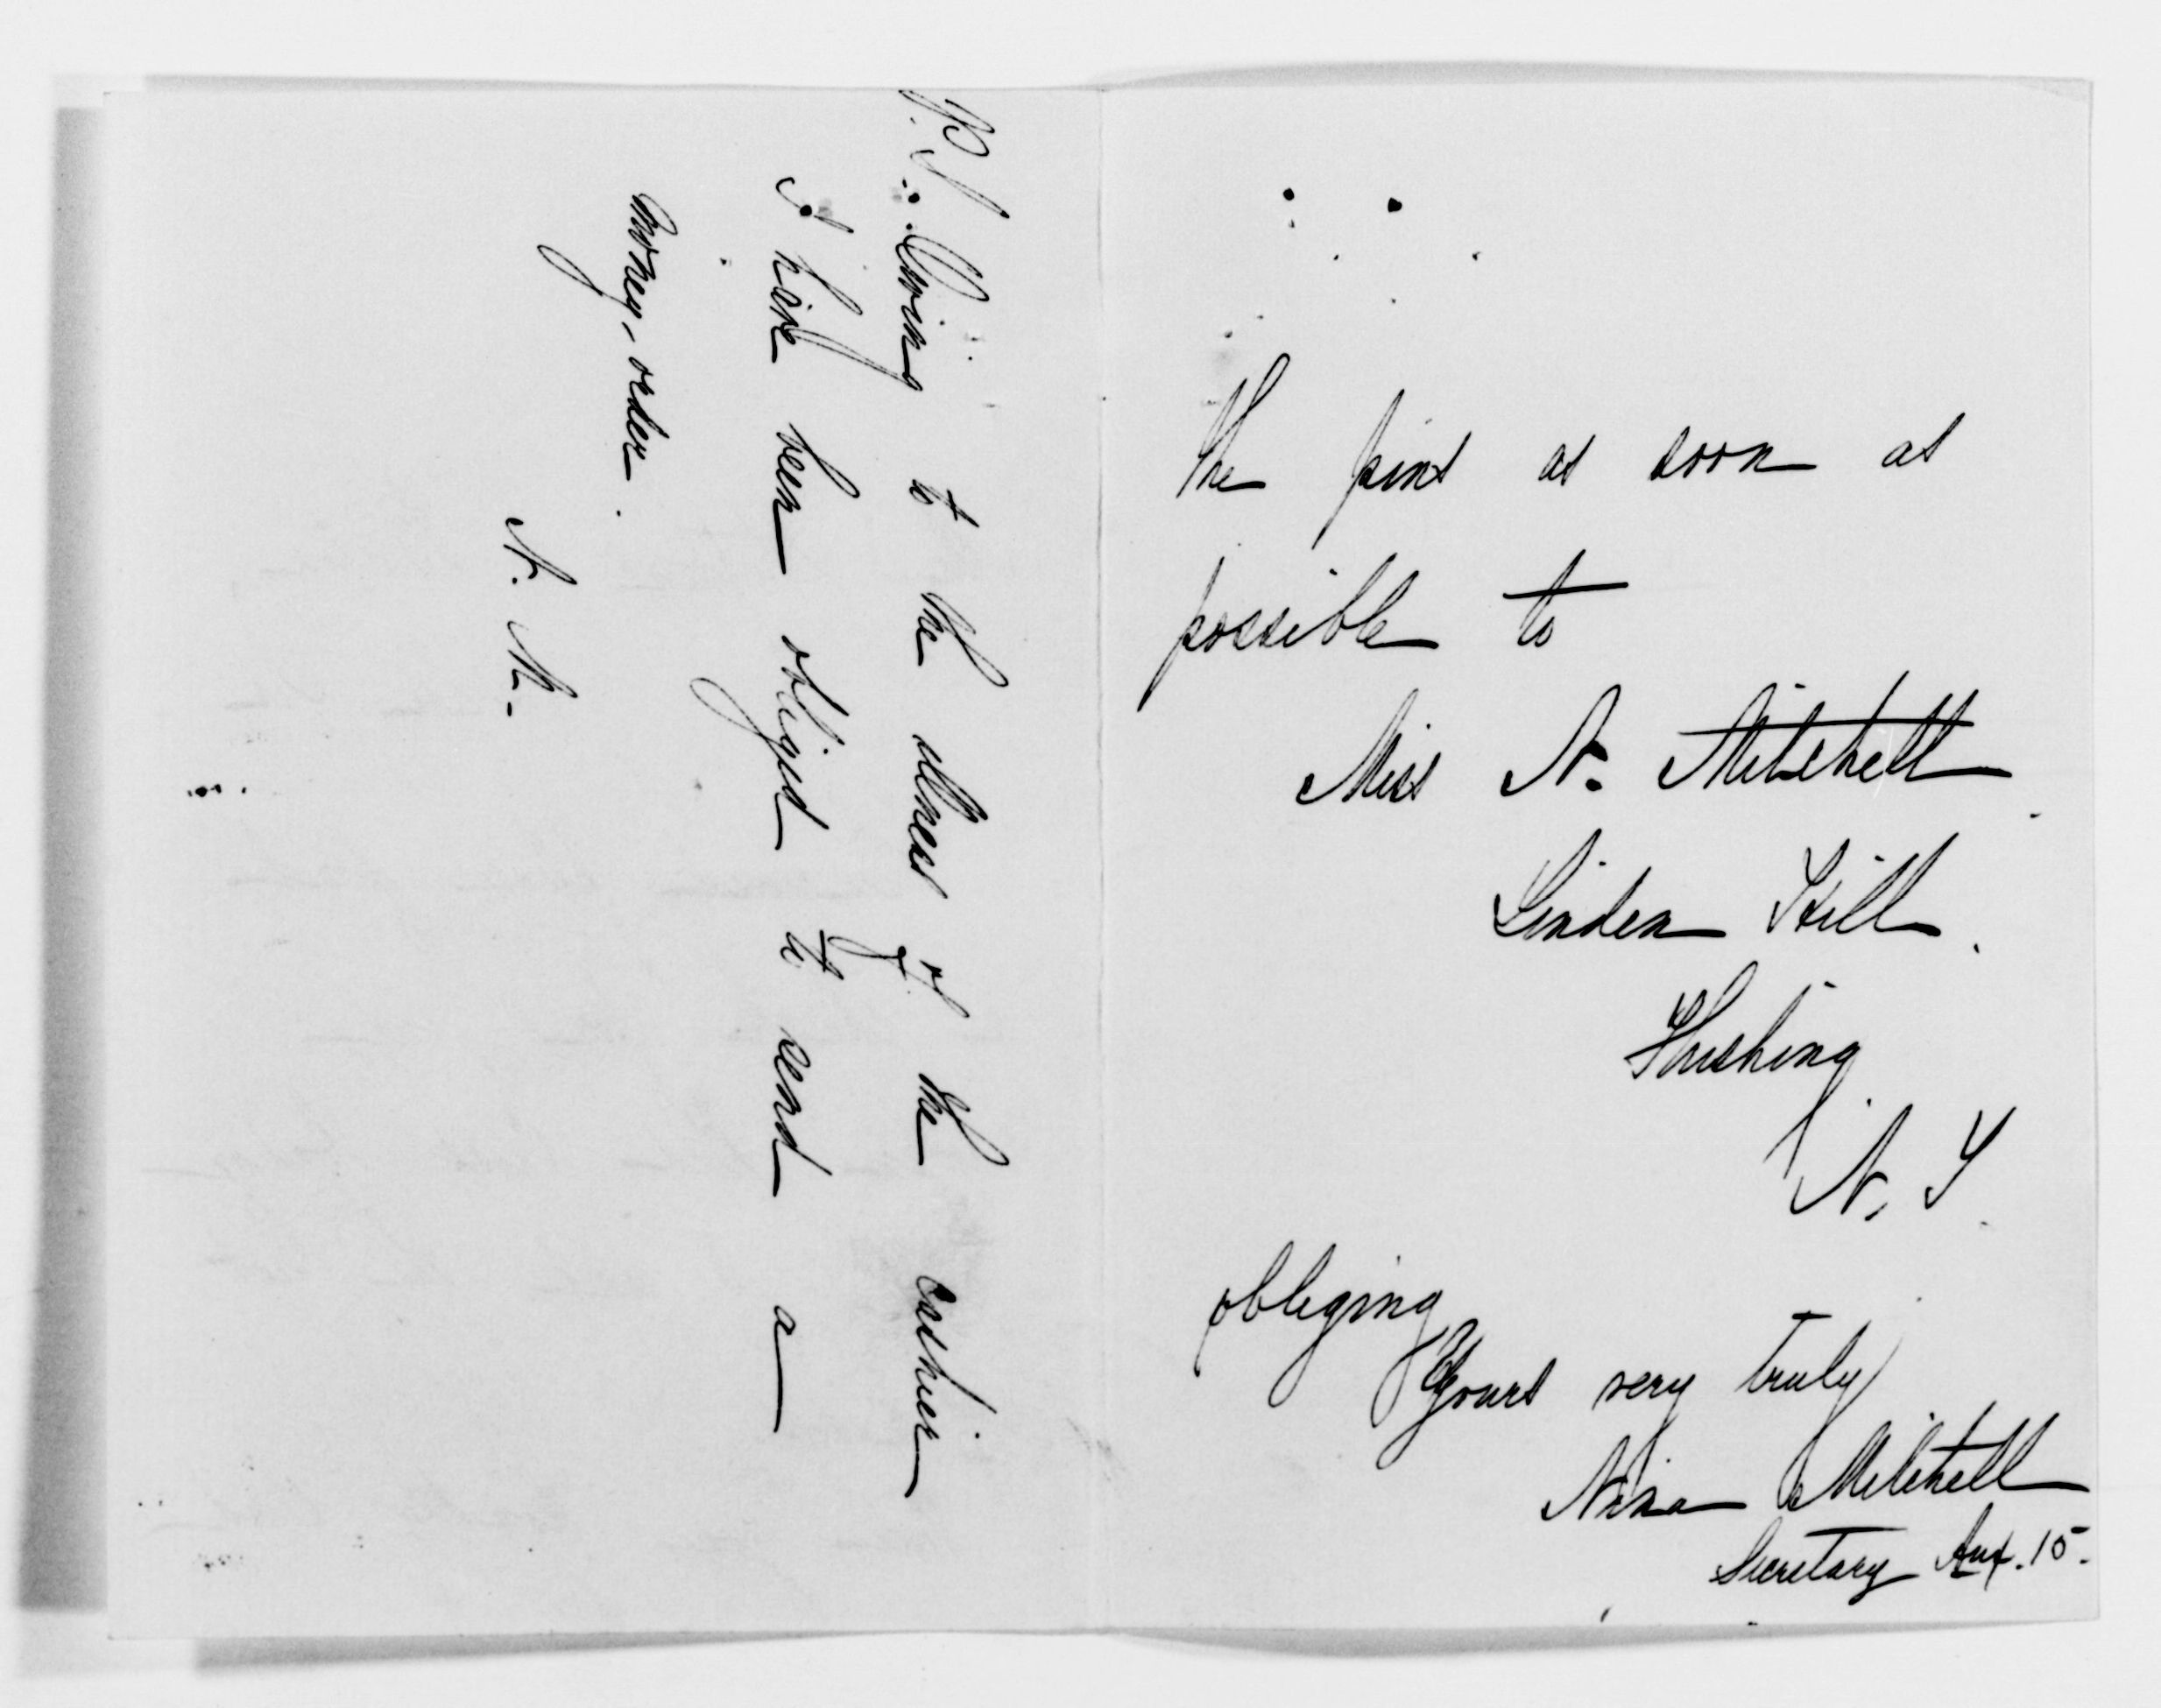 the pins as soon as
possible to
Miss N. Mitchell.
Linden Hill.
Flushing
N. Y.
obliging
Yours very truly
Nina Mitchell
Secretary Aux. 15.
P.S. Owing to the illness of the cashier
I have been obliged to send a
money-order.
N. M.